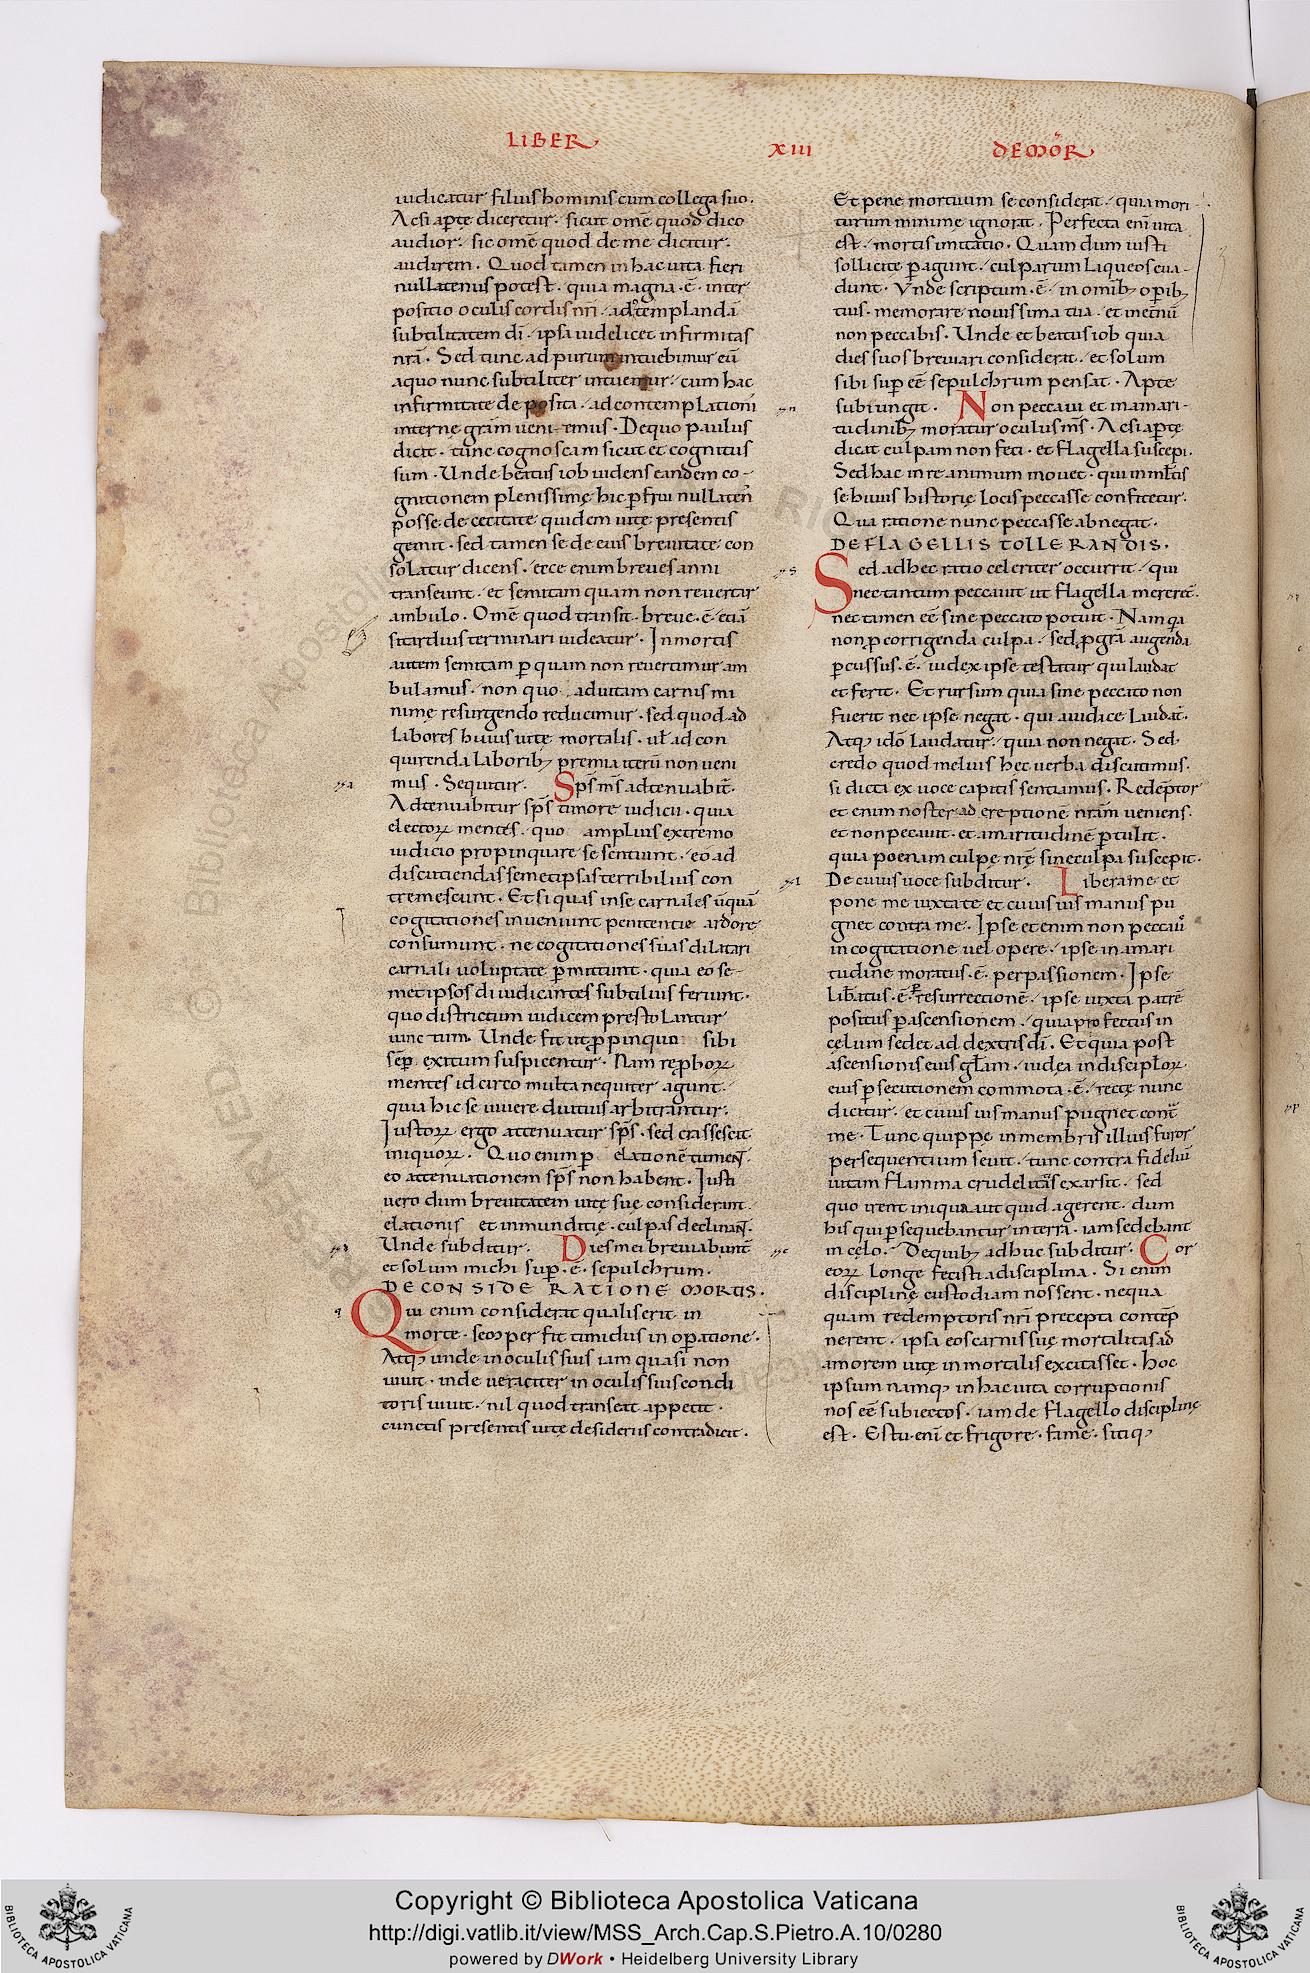 LIBER XIII DE MŌR
iudicatur filius hominis cum collega suo.
Ac si aperte diceretur. sicut omē quod dico
audior. sic omē quod de me dicitur.
audirem. Quod tamen in hac uita fieri
nullatenus potest. quia magna .ē. inter
positio oculis cordis nr̄i. ad cōtemplandā
subtilitatem dī. ipsa uidelicet infirmitas
nr̄a. Sed tunc ad purum intuebimur eū
a quo nunc subtiliter intuemur. cum hac
infirmitate deposita. ad contemplationi
internę grām uenitemus. De quo paulus
dicit. tunc cognoscam sicut et cognitus
sum. Unde beatus iob uidens eandem co-
gnitionem plenissimę hic perfrui nullaten̄
posse. de cecitate quidem uitę presentis
gemit. sed tamen se de eius breuitate con
solatur dicens. ecce enim breues anni
transeunt. et semitam quam non reuertar
ambulo. Omē quod transit. breue .ē. etiā
si tardius terminari uideatur. In mortis
autem semitam per quam non reuertimur am
bulamus. non quo ad uitam carnis mi
nimę resurgendo reducimur. sed quod ad
labores huius uitę mortalis. ul̄ ad con
quirenda laborib; premia iterū non ueni
mus. Sequitur. Sps̄ ms̄ adtenuabit̄.
Adtenuabitur sps̄ timore iudicii. quia
electoꝝ mentes. quo amplius extremo
iudicio propinquare se sentiunt. eo ad
discutiendas semetipsas terribilius con
tremescunt. Et si quas in se carnales ūquā
cogitationes inueniunt penitentie ardore
consumunt. ne cogitationes suas dilatari
carnali uoluptate permittunt. quia eo se-
metipsos diiudicantes subtilius feriunt.
quo districtum iudicem prestolantur
iunctum. Unde fit ut propinquo sibi
semp̄ exitum suspicentur. Nam reproboꝝ
mentes idcirco multa nequiter agunt.
quia hic se uiuere diutius arbitrantur.
Iustoꝝ ergo attenuatur sps̄. sed crassescit
iniquoꝝ. Quo enim per elationē tumen̄t.
eo attenuationem sps̄ non habent. Iusti
uero dum breuitatem uitę suę considerant.
elationis et inmunditię. culpas declinan̄t.
Unde subditur. Dies mei breuiabunt̄
et solum michi sup̄.ē. sepulchrum.
DE CONSIDERATIONE MORTIS.
Qui enim considerat qualis erit in
morte. semper fit timidus in operatione.
Atq; unde in oculis suis iam quasi non
uiuit. inde ueraciter in oculis sui condi
toris uiuit. nil quod transeat appetit.
cunctis presentis uitę desideriis contradicit.
Et pene mortuum se considerat. quia mori-
turum minime ignorat. Perfecta eni uita
est. mortis imitatio. Quam dum iusti
sollicitę peragunt. culparum laqueos eua-
dunt. Vnde scriptum .ē. in omib; operib;
tuis. memorare nouissima tua. et inet̄nū
non peccabis. Unde et beatus iob quia
dies suos breuiari considerat. et solum
sibi sup eē sepulchrum pensat. Apte
subiungit. Non peccaui et in amari-
tudinib; moratur oculus ms̄. Ac si apertę
dicat culpam non feci. et flagella suscepi.
Sed hac in re animum mouet. qui in mltīs
se huius historię locis peccasse confitetur.
Qua ratione nunc peccasse abnegat.
DE FLAGELLIS TOLLERANDIS.
Sed ad hęc ratio celeriter occurrit. qui
nec tantum peccauit ut flagella mereret̄.
nec tamen eē sine peccato potuit. Nam q̄a
non pro corrigenda culpa. sed pro grā augenda
percussus .ē. iudex ipse testatur qui laudat
et ferit. Et rursum quia sine peccato non
fuerit nec ipse negat. qui audiace laudat̄.
Atq; idō laudatur. quia non negat. Sed
credo quod melius hęc uerba discutimus.
si dicta ex uoce capitis sentiamus. Redēptor
et enim noster ad ereptionē nr̄am ueniens.
et non peccauit. et amaritudinē pertulit.
quia poenam culpę nr̄ę sine culpa suscepit.
De cuius uoce subditur. Libera me et
pone me iuxta te et cuius uis manus pu
gnet contra me. Ipse et enim non peccauit
in cogitatione uel opere. ipse in amari
tudine moratus .ē. per passionem. Ipse
lib̄atus .ē. per resurrectionē. ipse iuxta patrē
positus per ascensionem. quia profectus in
cęlum sedet ad dextris dī. Et quia post
ascensionis eius gl̄am. iudea in discipuloꝝ
eius persecutionem commota .ē. rectę nunc
dicitur. et cuius uis manus pugnet cont̄
me. Tunc quippę in membris illius furor
persequentium seuit. tunc contra fideliū
uitam flamma crudelitas exarsit. sed
quo irent iniqui aut quid agerent. dum
his qui persequebantur in terra. iam sedebant
in cęlo. De quib; adhuc subditur. Cor
eoꝝ longe fecisti a disciplina. Si enim
disciplinę custodiam nossent. nequa
quam redemptoris nr̄i precepta contēp
nerent. ipsa eos carnis suę mortalitas ad
amorem uitę inmortalis excitasset. Hoc
ipsum namq; in hac uita corruptionis
nos eē subiectos. iam de flagello disciplinę
est. Estu.eni et frigore. fame. sitiq;
Copyright © Biblioteca Apostolica Vaticana
http://digi.vatlib.it/view/MSS_Arch.Cap.S.Pietro.A.10/0280
powered by DWork • Heidelberg University Library
BIBLIOTECA APOSTOLICA VATICANA
BIBLIOTECA APOSTOLICA VATICANA